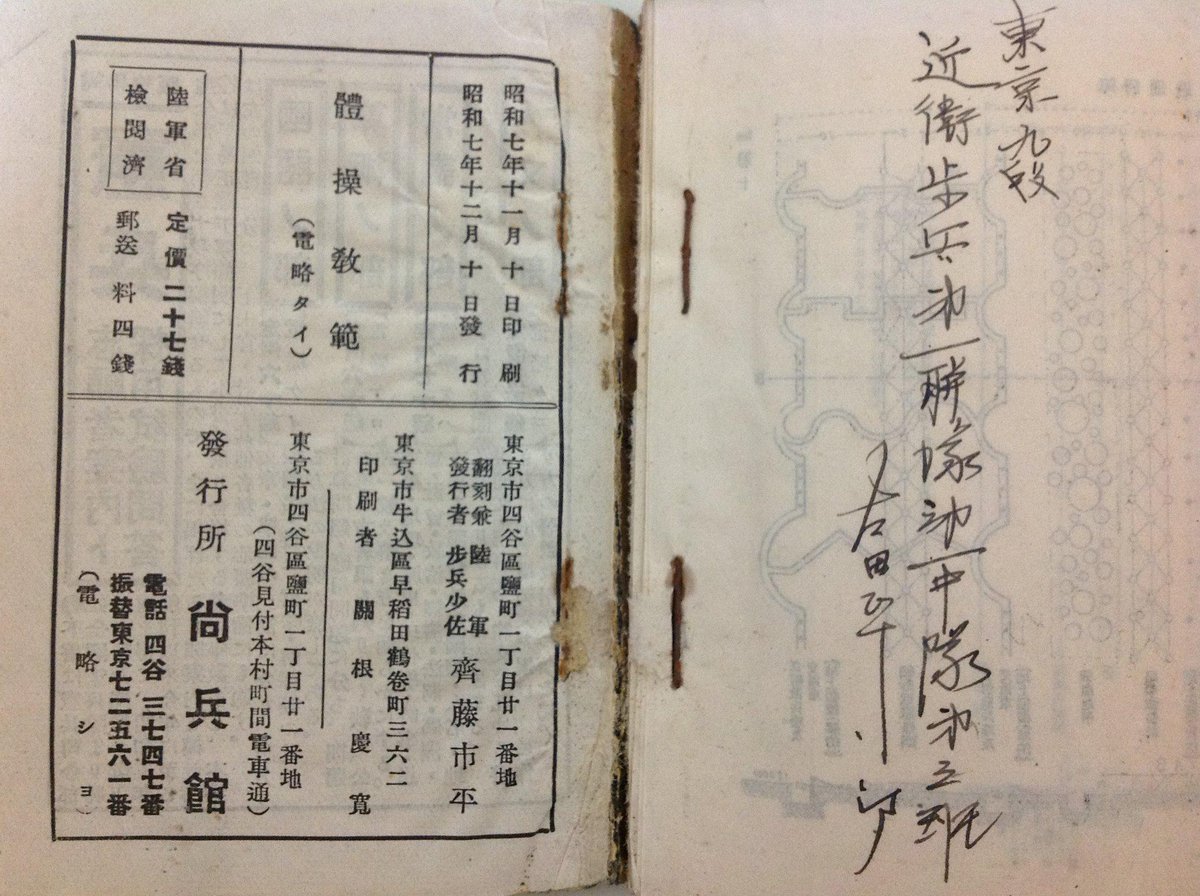 東京九段
近衛歩兵㐧一聯隊㐧一中隊㐧三班
昭和七年十一月十日印刷
昭和七年十二月十日發行
體操敎範
(電略タイ)
陸軍省
檢閲濟
定價二十七錢
郵送料四錢
東京市四谷區鹽町一丁目廿一番地
翻刻兼發行者 陸軍步兵少佐 齊藤市平
東京市牛込區早稻田鶴卷町三六二
印刷者 關根慶寬
東京市四谷區鹽町一丁目廿一番地
(四谷見付本村町間電車通)
發行所 尙兵館
電話四谷三七四七番
振替東京七二五六一番
(電略ショ)